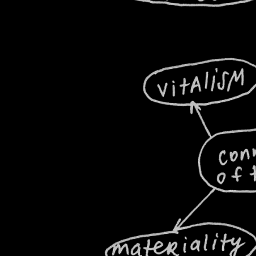 vitALisM
of
materiality